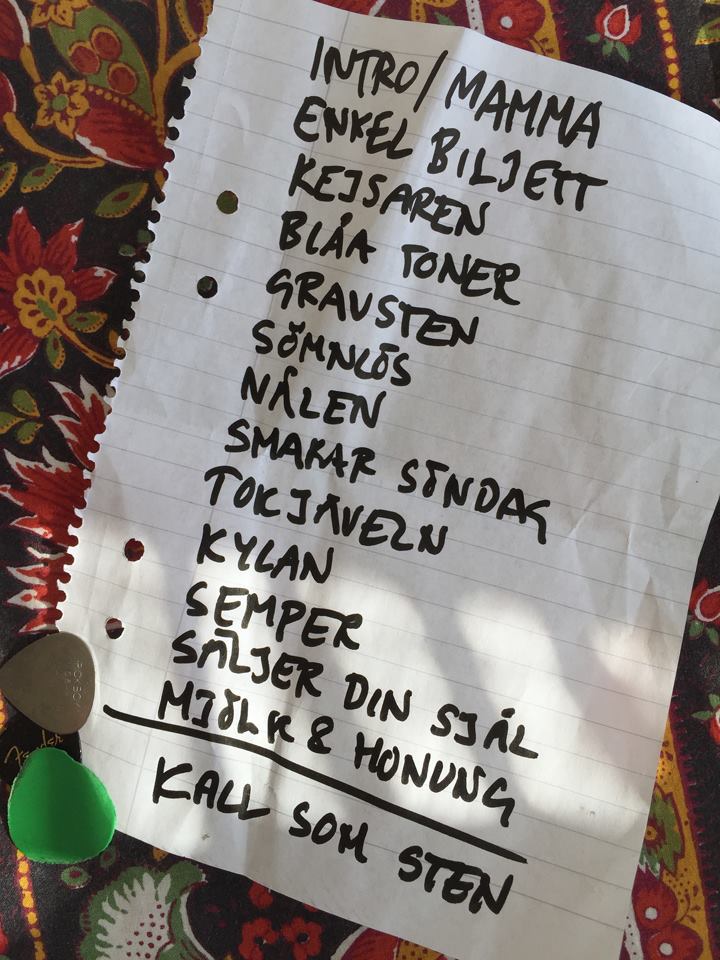 INTRO/MAMMA
ENKEL BILJETT
KEJSAREN
BLÅA TONER
GRAVSTEN
SÖMNLÖS
NÅLEN
SMAKAR SÖNDAG
TOKJÄVELN
KYLAN
SEMPER
SÄLJER DIN SJÄL
MJÖLK & HONUNG
KALL SOM STEN
PICKBOY
Fender